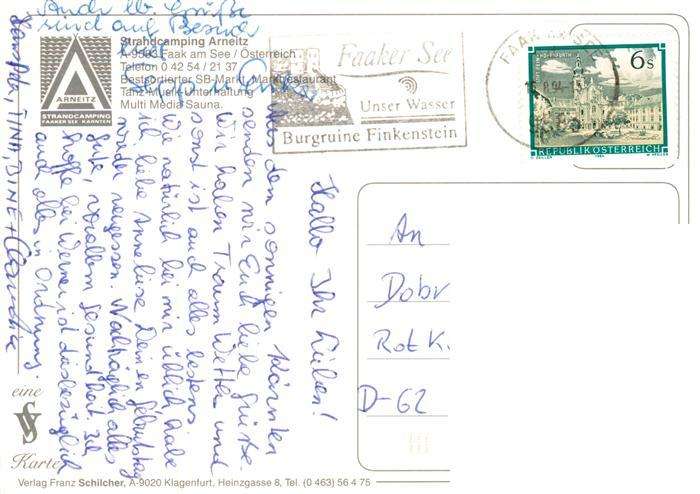 Auch lb. Grüße
sind auf Besuch
Strandcamping Arneitz
A-9583 Faak am See / Österreich
Telefon 0 42 54 / 21 37
Bestsortierter SB-Markt, Marktrestaurant
Tanz-Musik-Unterhaltung
Multi Media Sauna.
ARNEITZ
STRANDCAMPING
FAAKER SEE KÄRNTEN
Faaker See
Unser Wasser
Burgruine Finkenstein
FAAK AM
6 S
REPUBLIK ÖSTERREICH
Hallo Ihr Lieben!
Aus dem sonnigen Kärnten
senden wir Euch liebe Grüße.
Wir haben Traum Wetter und
sonst ist auch alles bestens
Wie natürlich bei mir üblich habe
ich liebe Anneliese Deinen Geburtstag
wieder vergessen. Nachträglich alles
Gute, vorallem Gesundheit. Ich
hoffe bei Werner ist diesbezüglich
auch alles in Ordnung.
TINA, BINE + Claudia
An
Dobr
Rot K.
D-62
eine
VS
Karte
Verlag Franz Schilcher, A-9020 Klagenfurt, Heinzgasse 8, Tel. (0 463) 56 4 75